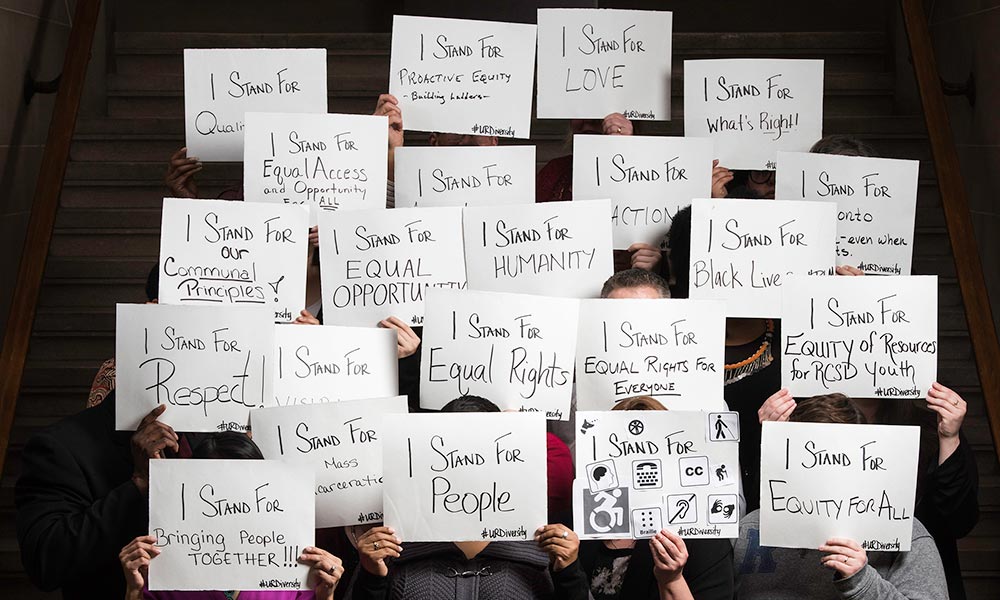 I Stand For
PROACTIVE EQUITY
- Building Ladders -
#URDiversity
I Stand For
LOVE
#URDiversity
I Stand For
I Stand For
What's Right!
I Stand For
Equal Access
and Opportunity
For ALL
I Stand For
I Stand For
ACTION
I Stand For
-even when
#URDiversity
I Stand For
our
Communal
Principles!
#URDiversity
I Stand For
EQUAL
OPPORTUNITY
I Stand For
HUMANITY
I Stand For
Black Lives
I Stand For
Respect!
I Stand For
I Stand For
Equal Rights
I Stand For
EQUAL RIGHTS FOR
EVERYONE
I Stand For
Equity of Resources
for RCSD Youth
#URDiversity
I Stand For
Mass
I Stand For
People
#URDiversity
I Stand For
CC
Braille
I Stand For
EQUITY FOR ALL
#URDiversity
I Stand For
Bringing People
TOGETHER!!!
#URDiversity